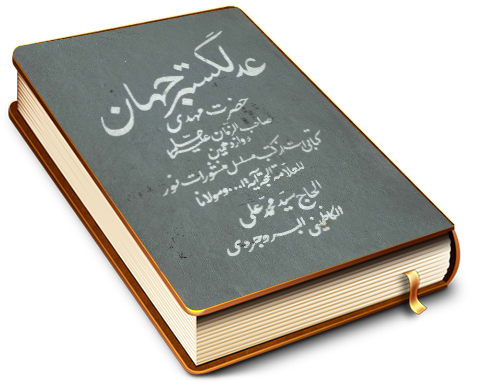 عدلگستر جهان
حضرت مهدی
صاحب الزمان علیه السلام
دوازدهمین
کتابی است از کتب مسلسل منشورات نور
للعلامة الحجة آیة الله ... و مولانا
الحاج سید محمد علی
الکاظمینی البروجردی